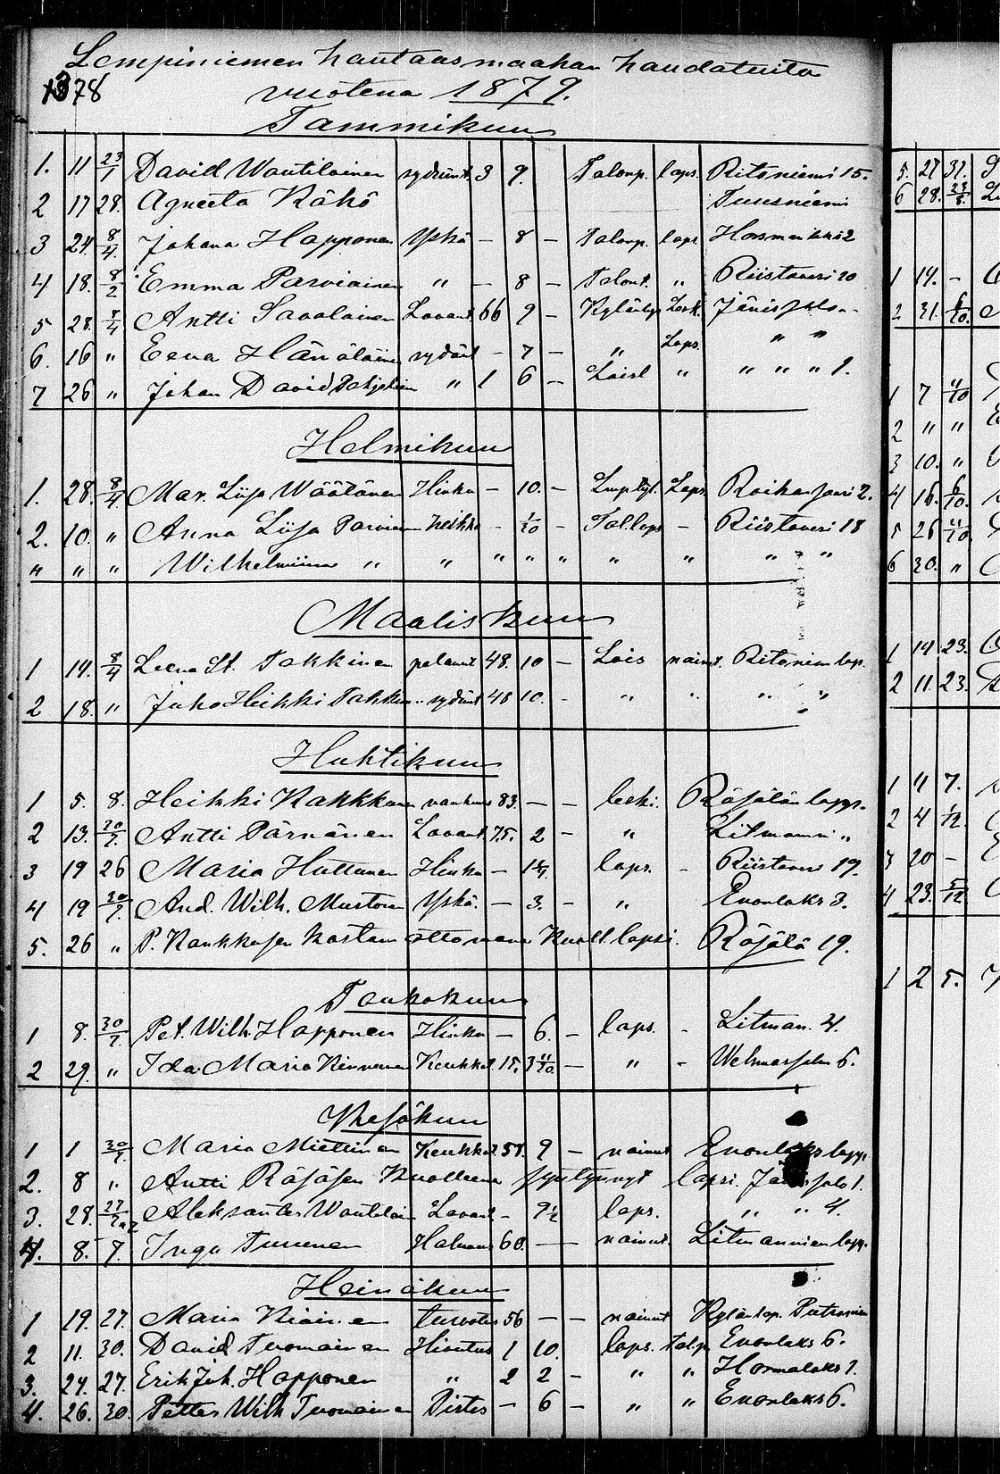 Lempiniemen hautausmaahan haudatuita
1878 vuotena 1879.
Tammikuu
1. 11 23/1 David Wautilainen sydänt. 3 9. Talonp. laps. Ritoniemi 15.
2 17 28. Agneeta Kähö Tuusniemi
3 24. 8/4. Johana Happonen Yskä – 8 – Talonp. laps. Hosmanikki 2
4 18. 8/2 Emma Parviainen " – 8 – Talont. " Riistaveri 20
5 28. 8/4 Antti Savolainen Lavant. 66 9 – Kylänlap. Lesk. Jänissalo –
6. 16 " Eeva Hänäläinen sydänt – 7 – " Laps. " "
7 26 " Johan David " 1 6 – Loisl " " " " 1.
Helmikuu
1. 28. 8/4. Mar. Liisa Väätänen Hinku – 10. – Laps. 2.
2. 10. " Anna Liisa Parviain heikko – 1/30 – Tal laps – Riistaveri 18
" " " Wilhelmiina " " " " " " " " "
Maaliskuu
1 14. 8/4 Leena St. Takkinen polanut 48. 10 – Lois nainut. Ritoniem lap.
2 18. " Juho Heikki Takkin " sydänt 48 10. – " " " "
Huhtikuu
1 5. 8. Heikki Kakkkon vanhuus 83. – – leski. Räsälän lapp.
2 13. 20/7. Antti Pärnänen Lavant. 75. 2 – " Litmanni "
3 19 26 Maria Huttunen Hinku – 1¼. laps. – Riistaveri 19.
4 19 20/7. And. Wilh. Murtonen Yskä. – 3. – " Enonlaks 3.
5. 26 " P. Kaukkosen Kastam ottomana Kuoll. lapsi. Räsälä 19.
Toukokuu
1 8. 30/7 Pet. Wilh. Happonen Hinku – 6. – laps. – Litman. 4.
2 29. " Ida Maria Kinnunen Keuhkot. 15. 3 11/30 – " – 6.
Kesäkuu
1 1 30/7. Maria Miettinen Keuhkot. 58. 9 – nainut Enonlaks lapp.
2. 8 " Antti Räsäsen Kuolleena syntynyt lapsi. Jänissalo 1.
3. 28. Aleksanter Wautilain Lavant – 9½ laps. " " 4.
4. 8. 7. Inga Turunen Halvaus 60. – – nainut Litmannien lapp.
Heinäkuu
1 19. 27. Maria Kiainen turvotus 56 – – nainut Kylän lap.
2 11. 30. David Tuomainen Hivutus 1 10. laps. tal.p. Enonlaks 6.
3. 24. 27. Erik Joh. Happonen " 2 2 – " " Hosmalaks 1.
4. 26. 30. Petter Wilh Tuomainen Pistos – 6 – " " Enonlaks 6.
5. 27 31.
6 28. 23/8.
1 14. –
2 31. 6/10.
1 7 4/10
2 " "
3 10. "
4 16. 6/10.
5 26 11/10.
6 30. "
1 14 23.
2 11. 23.
1 4 7.
2 4 1/12.
3 20 –
4 23. 5/12
1 2 5.